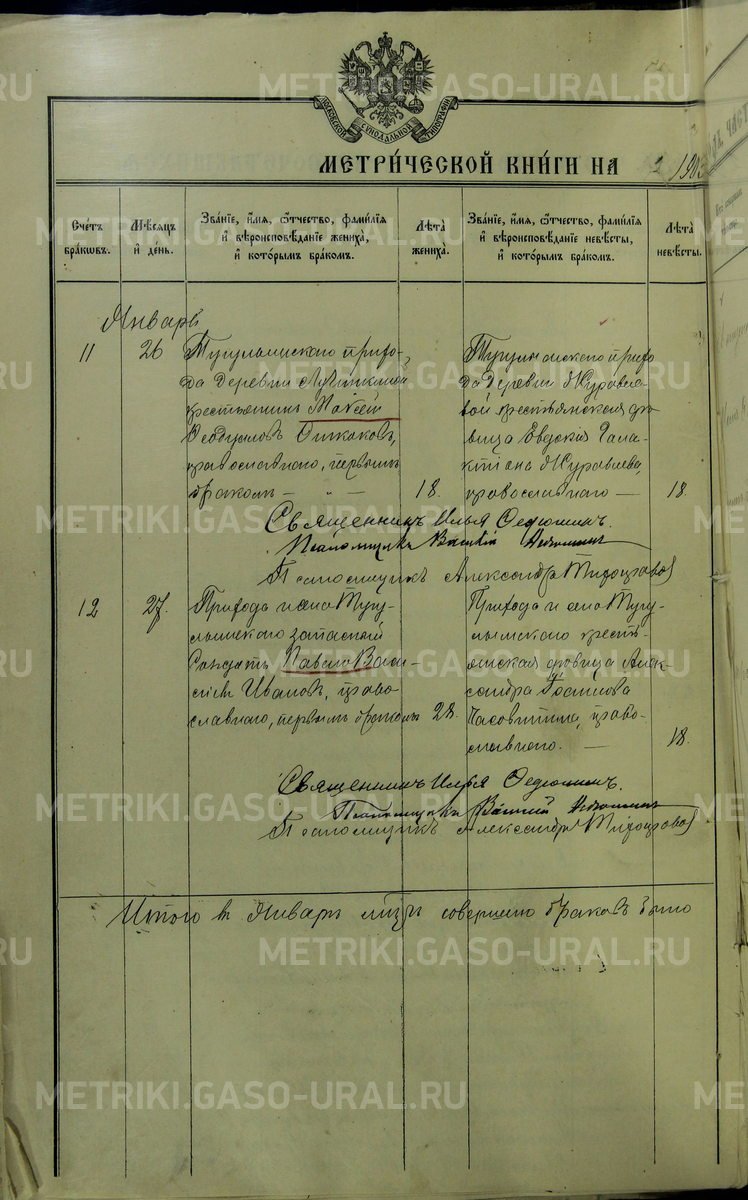 МОСКОВСКОЙ СѴНОДАЛЬНОЙ ТИПОГРАФІИ
МЕТРИ́ЧЕСКОЙ КНИ́ГИ НА 1903
Сче́тъ бра́ковъ.
Мѣ́сѧцъ и҆ де́нь.
Зва́нїе, и҆́мѧ, ѻ҆́тчество, фами́лїѧ и҆ вѣроисповѣ́данїе жениха̀, и҆ кото́рымъ бра́комъ.
Лѣ́та жениха̀.
Зва́нїе, и҆́мѧ, ѻ҆́тчество, фами́лїѧ и҆ вѣроисповѣ́данїе невѣ́сты, и҆ кото́рымъ бра́комъ.
Лѣ́та невѣ́сты.
Январь
11
26
Тугулымскаго прихо-
да деревни
крестьянинъ Мокей
Ѳеодуловъ
православнаго, первымъ
бракомъ —
18.
Тугулымскаго прихо
да деревни Журавле
вой крестьянская дѣ
вица Евдокія Гала
ктіона Журавлева,
православнаго —
18.
Священникъ Илья Федюшинъ.
Псаломщикъ Василій
Псаломщикъ Александръ Тихоцровъ
12
27.
Прихода и села Тугу-
лымскаго запасный
Солдатъ Павелъ Васи-
ліевъ Ивановъ, право-
славнаго, первымъ бракомъ
28.
Прихода и села Тугу
лымскаго кресть-
янская дѣвица Алек-
сандра
право-
славнаго. —
18.
Священникъ Илья Федюшинъ.
Псаломщикъ Василій
Псаломщикъ Александръ Тихоцровъ
Итого въ Январѣ мѣцѣ совершено браковъ было
METRIKI.GASO-URAL.RU